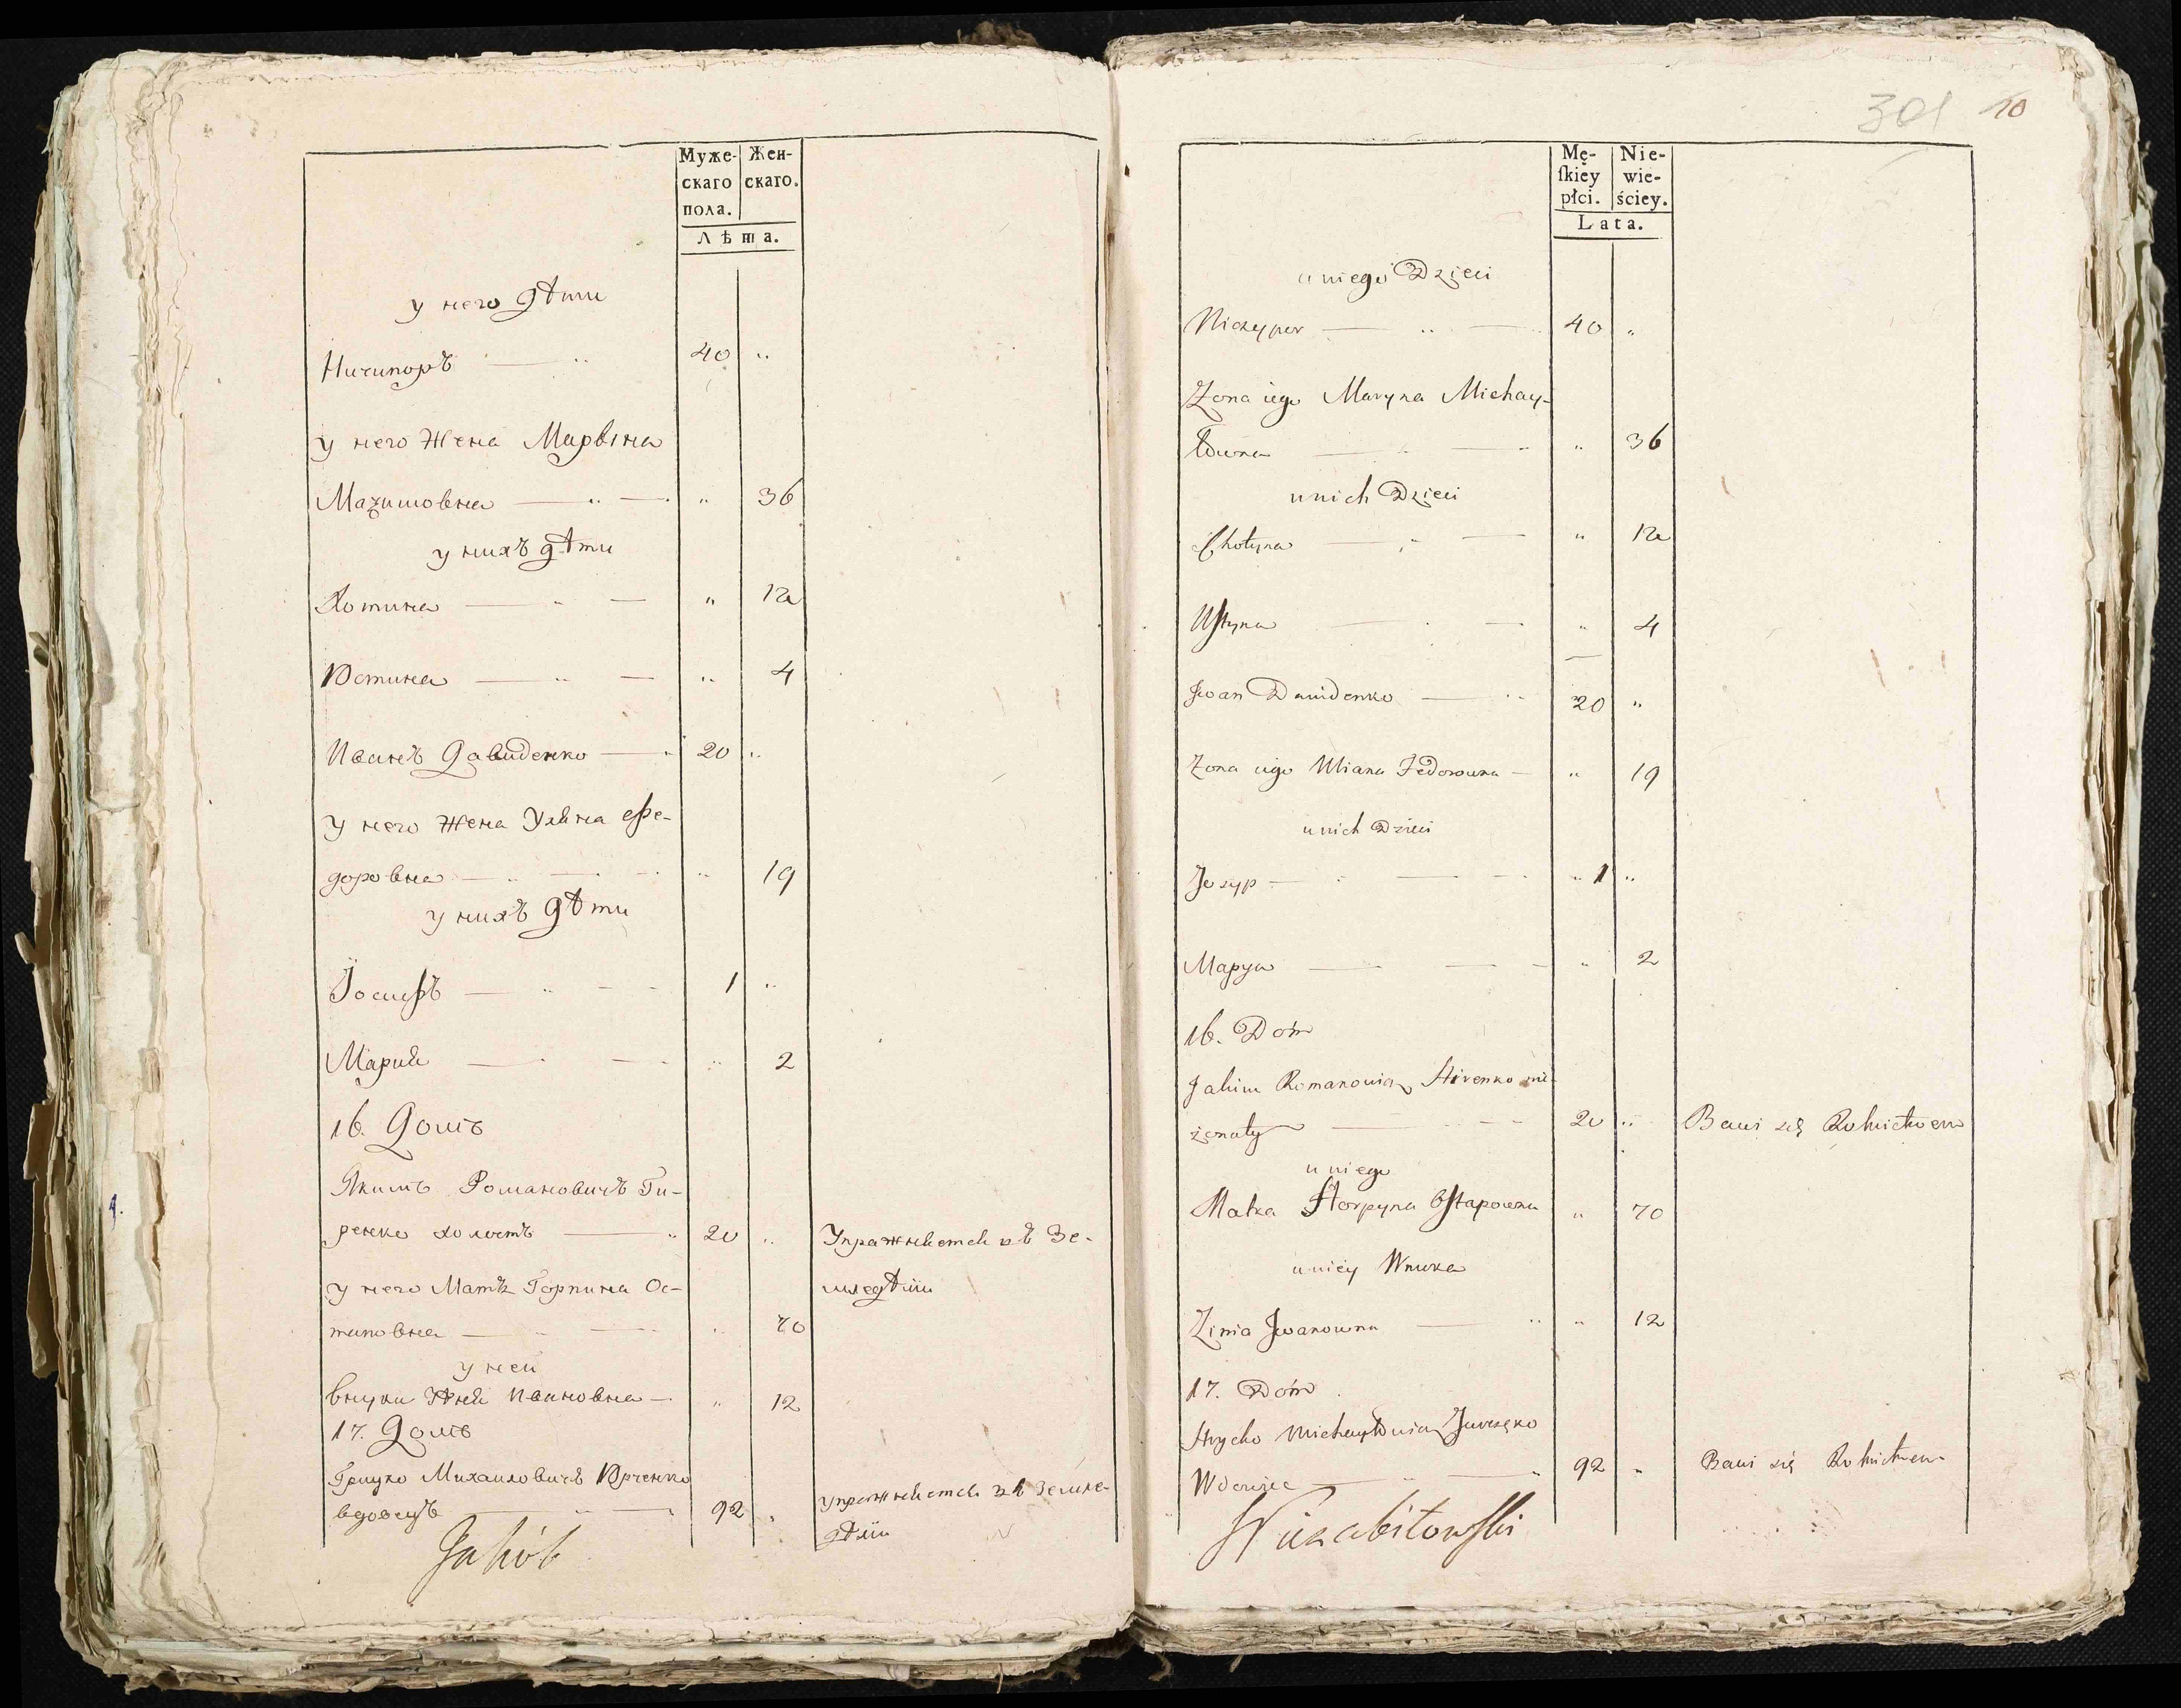 Муже-
скаго
пола.
Жен-
скаго.
Лѣта.
у него дѣти
Ничипоръ — „ 40 „
у него жена Марына
Махимовна — „ — „ 36
у нихъ дѣти
Хотина — „ — „ 12
Юстина — „ — „ 4
Иванъ Давиденко — „ 20 „
у него жена Уляна Фе-
доровна — „ — „ 19
у нихъ дѣти
Іосифъ — „ 1 „
Мария — „ 2
16. Домъ
Якимъ Романовичъ Ги-
ренко холостъ — „ 20 „ Упражняется въ Зе-
у него Мать Горпина Ос- мледѣлiи
таповна — „ — „ 70
у неи
внука Зѣня Ивановна — „ 12
17. Домъ
Грицко Михаиловичъ Юрченко
вдовецъ „ 92 „ упражняется въ Земле-
дѣлiи
Jakób
301 10
Mę-
skiey
płci.
Nie-
wie-
ściey.
Lata.
u niego Dzieci
Niczypor — „ — 40 „
Zona iego Maryna Michay-
łowna — „ — „ 36
u nich Dzieci
Chotyna — „ — „ 12
Ustyna — „ — „ 4
Jwan Dawidenko — „ 20 „
Zona iego Uliana Fedorowna — „ 19
u nich Dzieci
Jozyp — „ — „ 1 „
Маруя — — „ 2
16. Dóm
Jakim Romanowicz Hirenko nie-
żonaty — „ 20 „ Bawi się Rolnictwem
u niego
Matka Horpyna Ostapowna „ 70
u niéy Wnuka
Zinia Jwanowna — „ „ 12
17. Dóm
Hrycko Michayłowicz Jurczęko
Wdowiec — „ — „ 92 „ Bawi się Rolnictwem